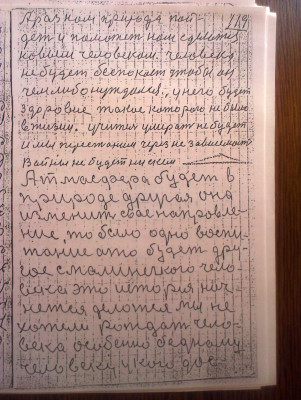 А раз нам природа пой-
дет и поможет нам сделатся
новым человеком. человека
небудет беспокоит чтобы он
чем либо нуждался, у него будет
здоровие такое которого не было
в жизни. учится умират не будет
и мы перестаним через не зависимост
Войны не будет ни с кем
Атмасфера будет в
природе другая она
изменит свое направле-
ние, то было одно воспи-
тание а то будет дру-
гое с малинкого чело-
века это история нач-
нется делатся мы не
хотели рождат чело-
века особенно бедному
человеку и кого дос-
119